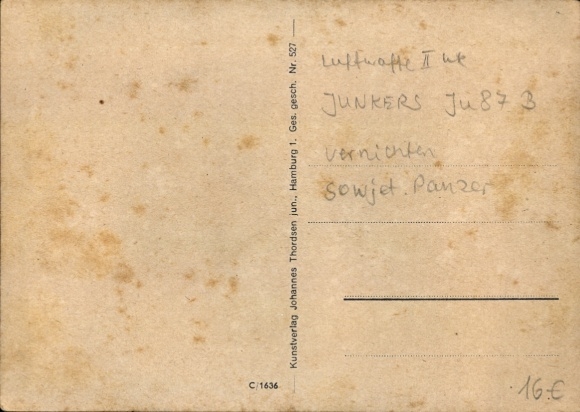 Luftwaffe II WK
JUNKERS Ju 87 B
vernichten
Sowjet. Panzer
Kunstverlag Johannes Thordsen jun., Hamburg 1. Ges. gesch. Nr. 527
C/1636
16 €